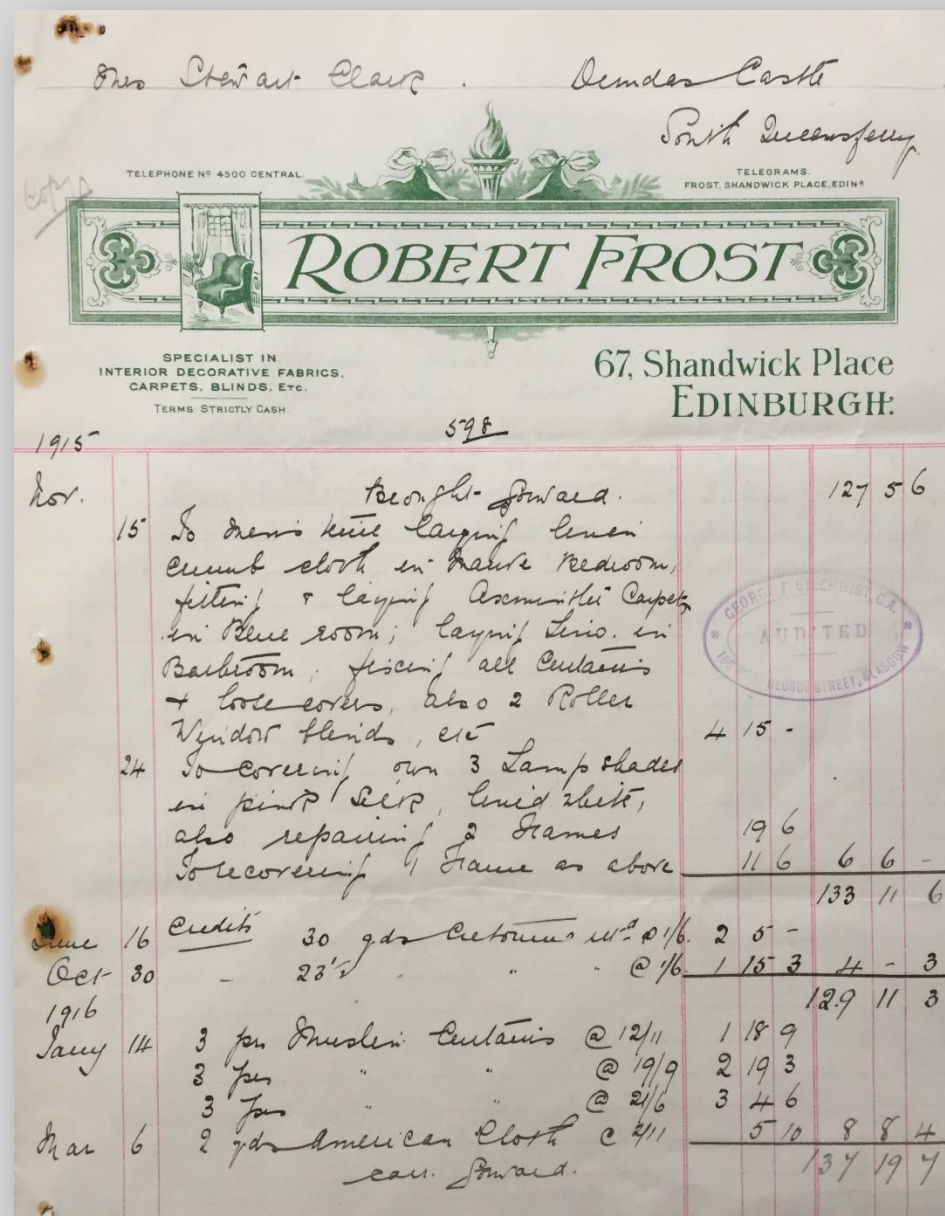 Mrs Stewart Clark. Dundas Castle
South Queensferry.
Copy
TELEPHONE Nº 4500 CENTRAL.
TELEGRAMS.
FROST, SHANDWICK PLACE, EDINR
ROBERT FROST
SPECIALIST IN
INTERIOR DECORATIVE FABRICS,
CARPETS, BLINDS, ETC.
TERMS STRICTLY CASH.
67, Shandwick Place
EDINBURGH:
598
1915
Nov. Brought forward. 127 5 6
15 To men's time laying linen
crumb cloth in Mauve Bedroom,
fitting & laying Axminster Carpet
in Blue room; laying Lino. in
Bathroom; fixing all Curtains
& loose covers, also 2 Roller
Window blinds, etc 4 15 -
GEORGE F. GILCHRIST, C.A.
AUDITED
GEORGE STREET, GLASGOW
24 To covering own 3 Lamp shades
in pink silk, lined white,
also repairing 2 frames 19 6
To recovering 1 frame as above 11 6 6 6 -
133 11 6
June 16 Credits 30 yds Cretonne retd @ 1/6. 2 5 -
Oct 30 - 23½ " " " @ 1/6. 1 15 3 4 - 3
129 11 3
1916
Jany 14 3 prs Muslin Curtains @ 12/11 1 18 9
3 prs " " @ 19/9 2 19 3
3 prs " " @ 21/6 3 4 6
Mar 6 2 yds American Cloth @ 2/11 5 10 8 8 4
carr. forward. 137 19 7